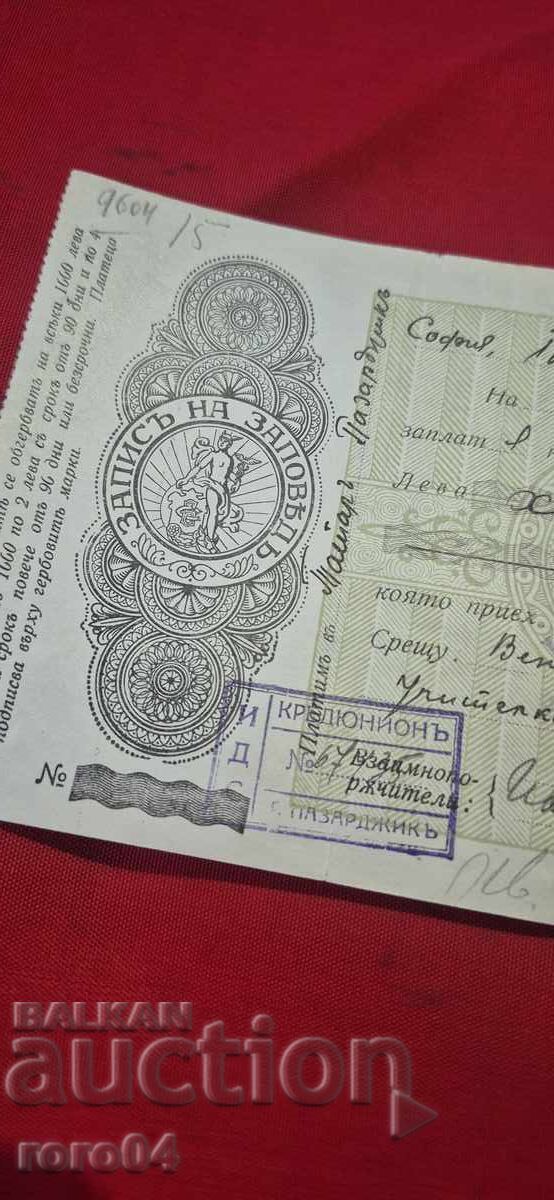 9604 /5
се обгербватъ на всѣки 1660 лева
1660 по 2 лева съ срокъ отъ 90 дни и по 4
срокъ повече отъ 96 дни или безсрочни. Платеца
подписва върху гербовитѣ марки.
ЗАПИСЪ НА ЗАПОВѢДЬ
№
Платимъ въ Пазарджикъ
София,
На
заплат
Лева
която приех
Срещу
Учителк
Взаимнопо-
ржчители:
КРЕДЮНИОНЪ
№ 67
Г. ПАЗАРДЖИКЪ
BALKAN
auction
roro04